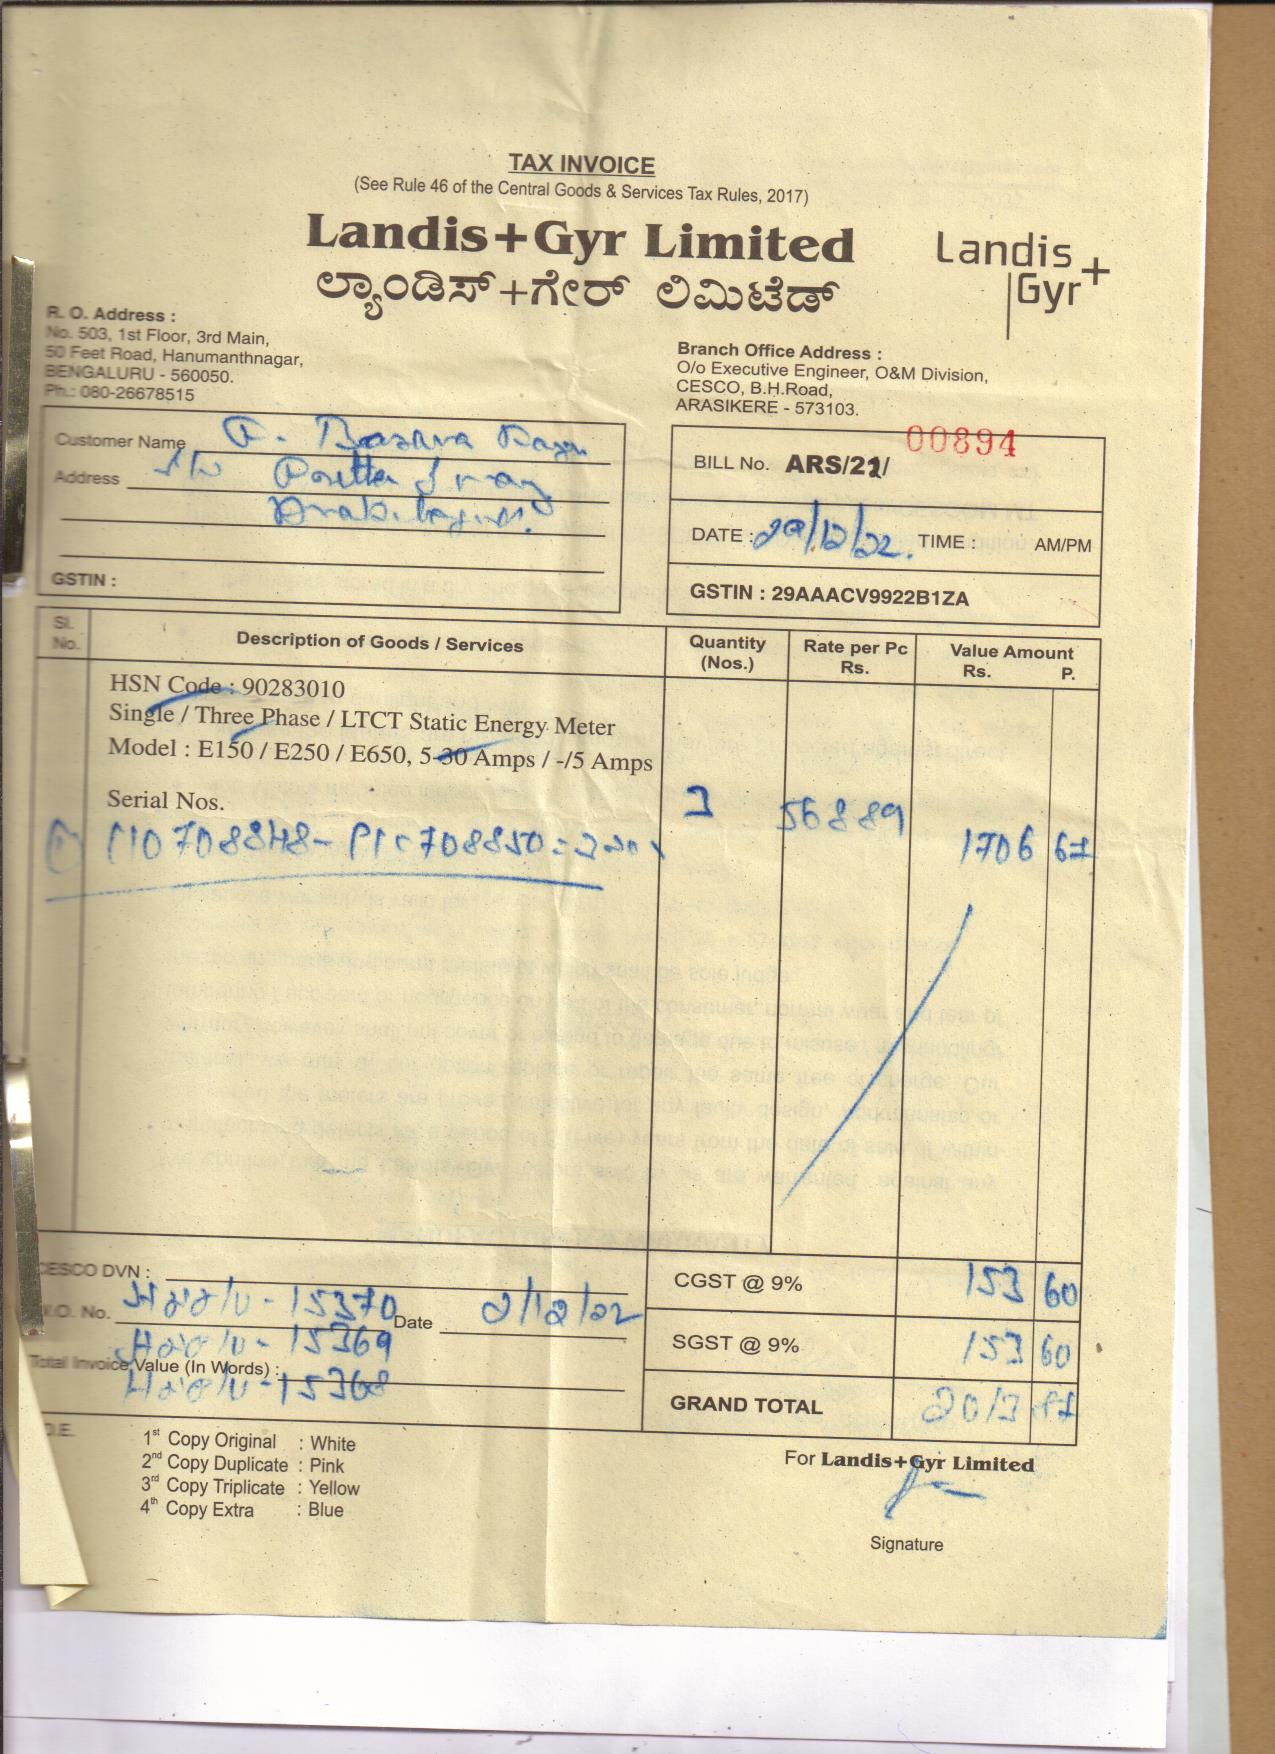 TAX INVOICE
(See Rule 46 of the Central Goods & Services Tax Rules, 2017)
Landis+Gyr Limited
ಲ್ಯಾಂಡಿಸ್+ಗೇರ್ ಲಿಮಿಟೆಡ್
Landis
Gyr+
R. O. Address :
No. 503, 1st Floor, 3rd Main,
50 Feet Road, Hanumanthnagar,
BENGALURU - 560050.
Ph.: 080-26678515
Branch Office Address :
O/o Executive Engineer, O&M Division,
CESCO, B.H.Road,
ARASIKERE - 573103.
Customer Name
Address
GSTIN :
00894
BILL No. ARS/22/
DATE : 29/12/22. TIME : AM/PM
GSTIN : 29AAACV9922B1ZA
Sl. No. Description of Goods / Services Quantity (Nos.) Rate per Pc Rs. Value Amount Rs. P.
HSN Code : 90283010
Single / Three Phase / LTCT Static Energy Meter
Model : E150 / E250 / E650, 5-30 Amps / -/5 Amps
Serial Nos.
3 56889 1706 67
CESCO DVN :
W.O. No. 15370 Date 2/12/22
15369
Total Invoice Value (In Words) :
15368
CGST @ 9% 153 60
SGST @ 9% 153 60
GRAND TOTAL 2013 87
O.E.
1st Copy Original : White
2nd Copy Duplicate : Pink
3rd Copy Triplicate : Yellow
4th Copy Extra : Blue
For Landis+Gyr Limited
Signature